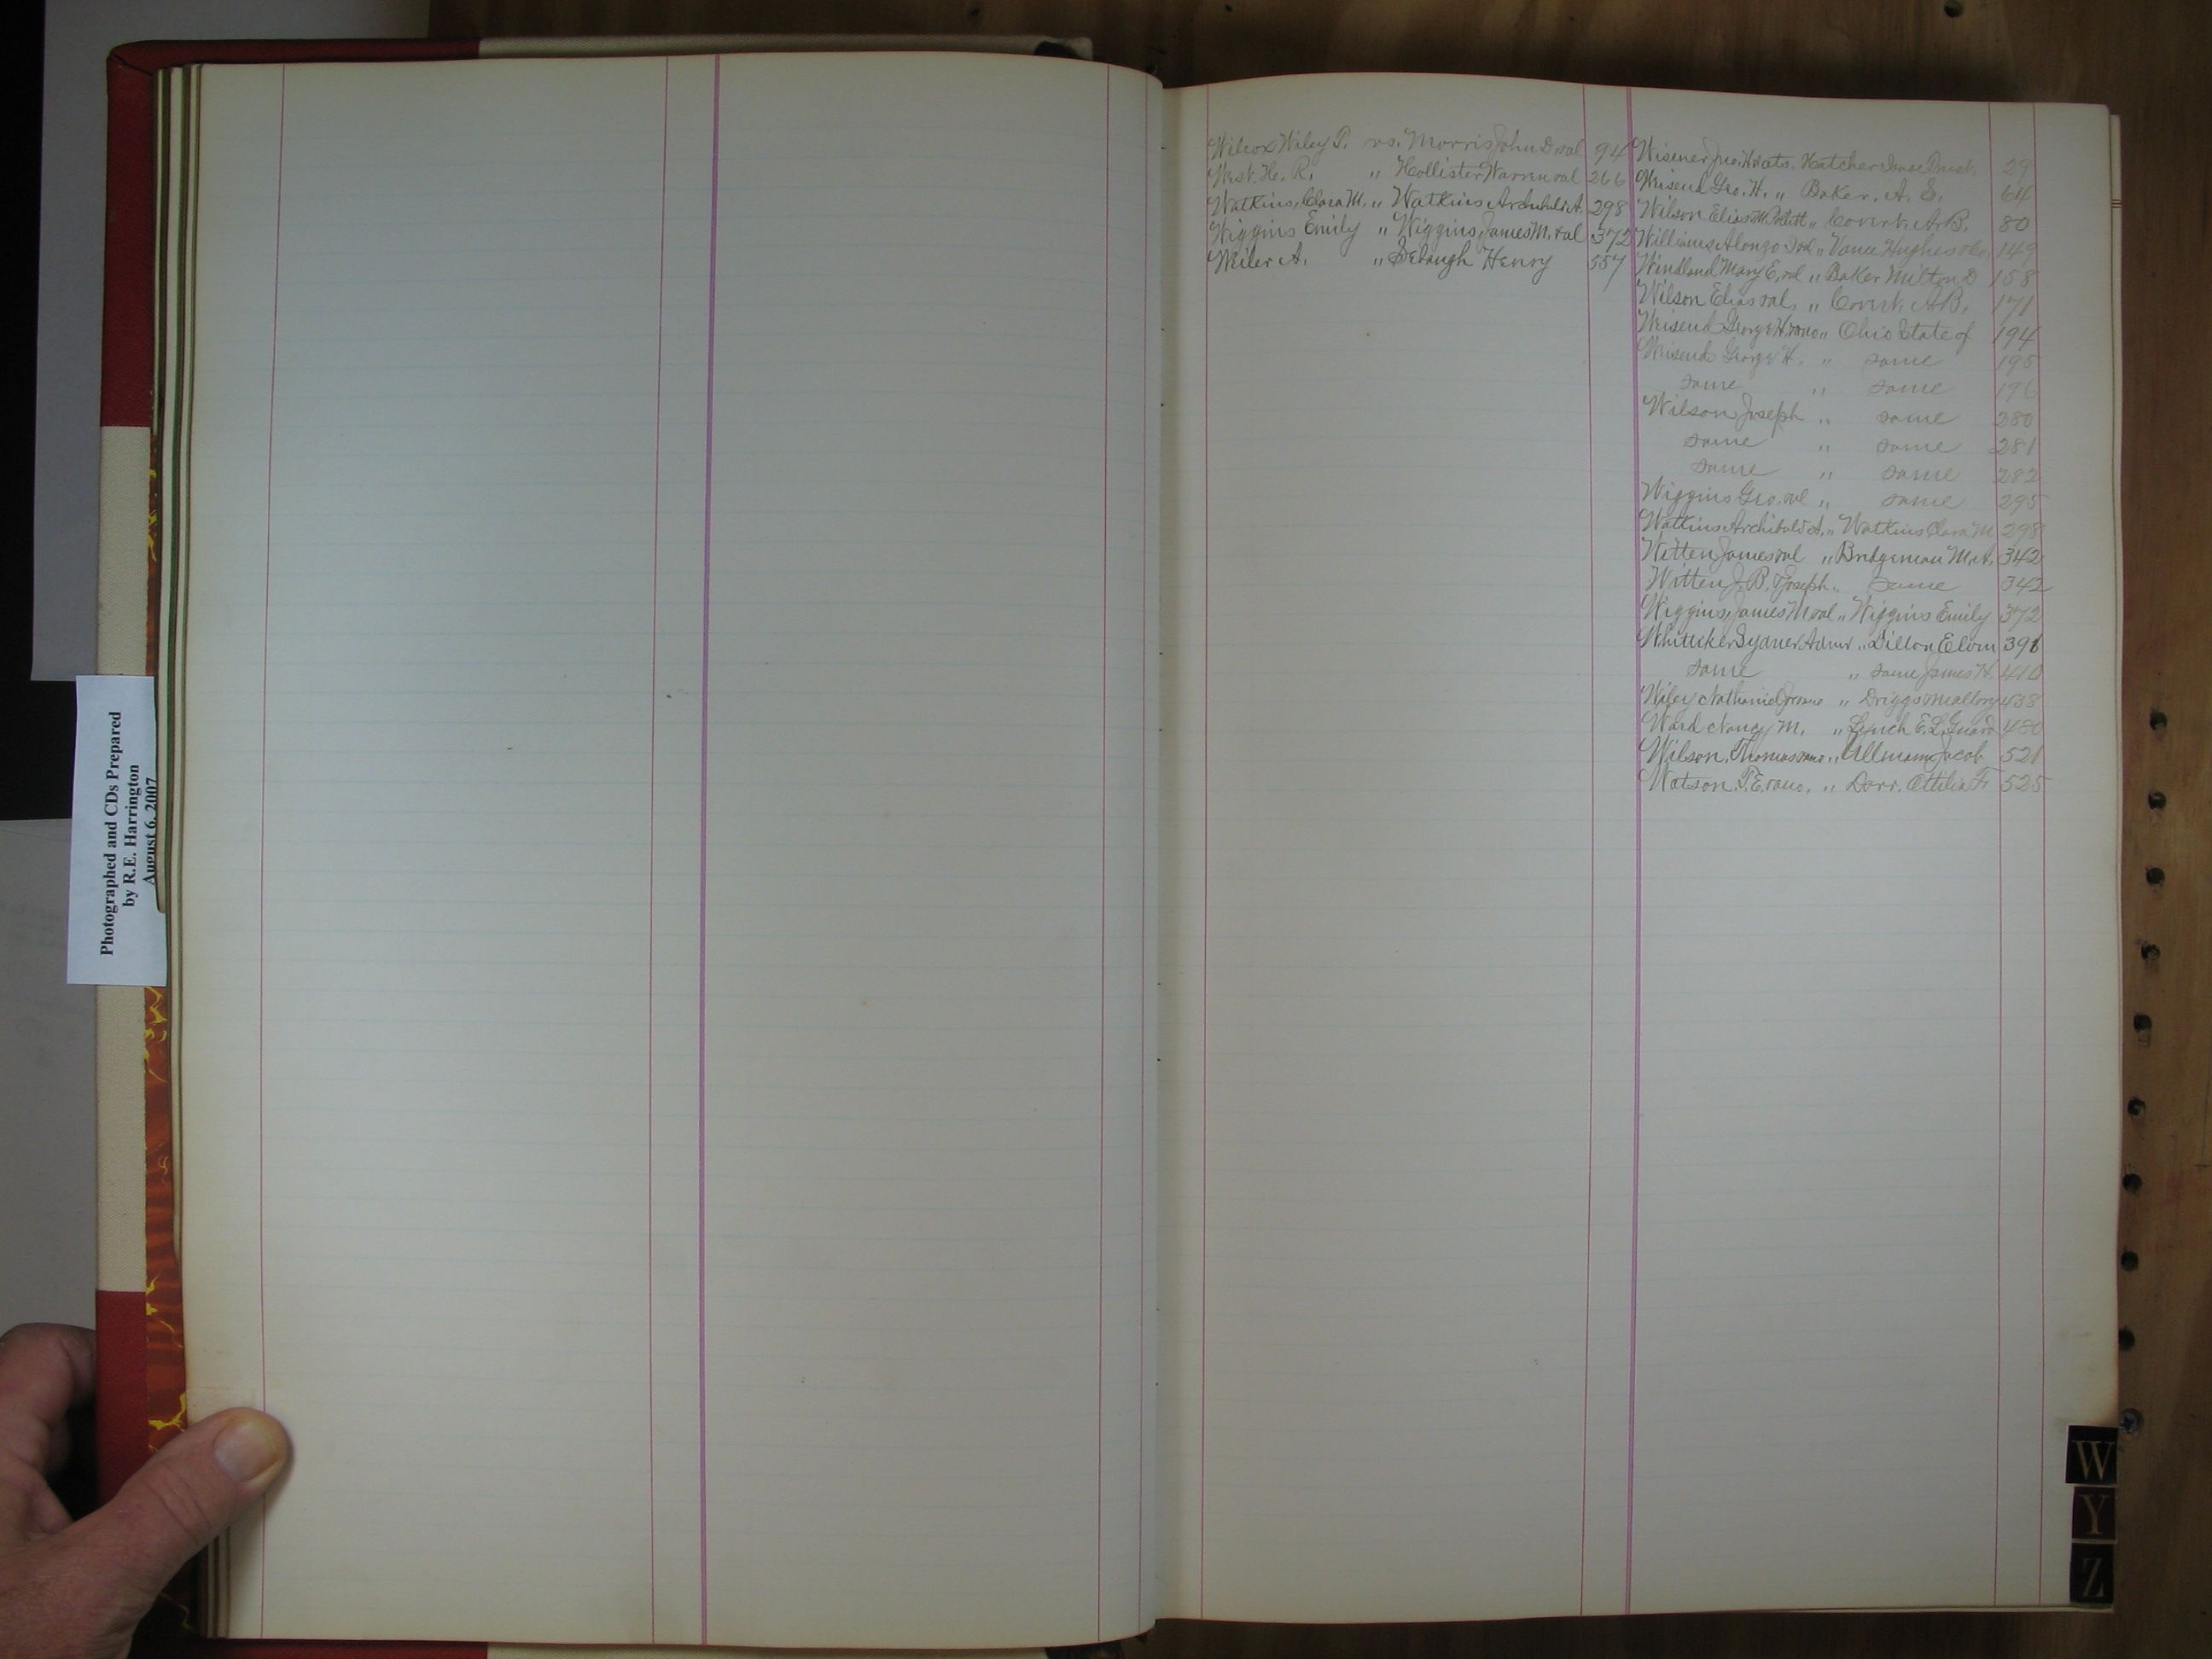 Photographed and CDs Prepared
by R.E. Harrington
August 6, 2007
Wilcox Wiley P. vs. Morris John D. & al 94
West. H. R. " Hollister Warren & al 266
Watkins, Clara M. " Watkins Archibald A. 298
Wiggins Emily " Wiggins, James M. & al 372
Weiler A. " Henry 557
Wisener Jno. H. & ats. Hatcher Isaac 29
Weisend Geo. H. " Baker, A. S. 64
Wilson Elias M. " Covert. A. B. 80
Williams Alonzo " Vance Hughes & Co. 149
Windland Mary E. & al " Baker Milton D 158
Wilson Elias & als " Covert. A. B. 171
Weisend George H. " Ohio State of 194
Weisend George H. " same 195
same " same 196
Wilson Joseph " same 280
same " same 281
same " same 282
Wiggins Geo. & al " same 295
Watkins Archibald A. " Watkins Clara M 298
Witten James & al " Bridgeman M. A. 342
Witten J. B. Joseph " same 342
Wiggins, James M & al " Wiggins Emily 372
Admr " Dillon 391
same " same James H. 410
Wiley Nathaniel " Driggs Mallory 438
Ward Nancy M. " Lynch E. L. Guard 480
Wilson, Thomas " Ullmann Jacob 521
Watson. T. E. " Dorr. Ottilia F. 525
W
Y
Z